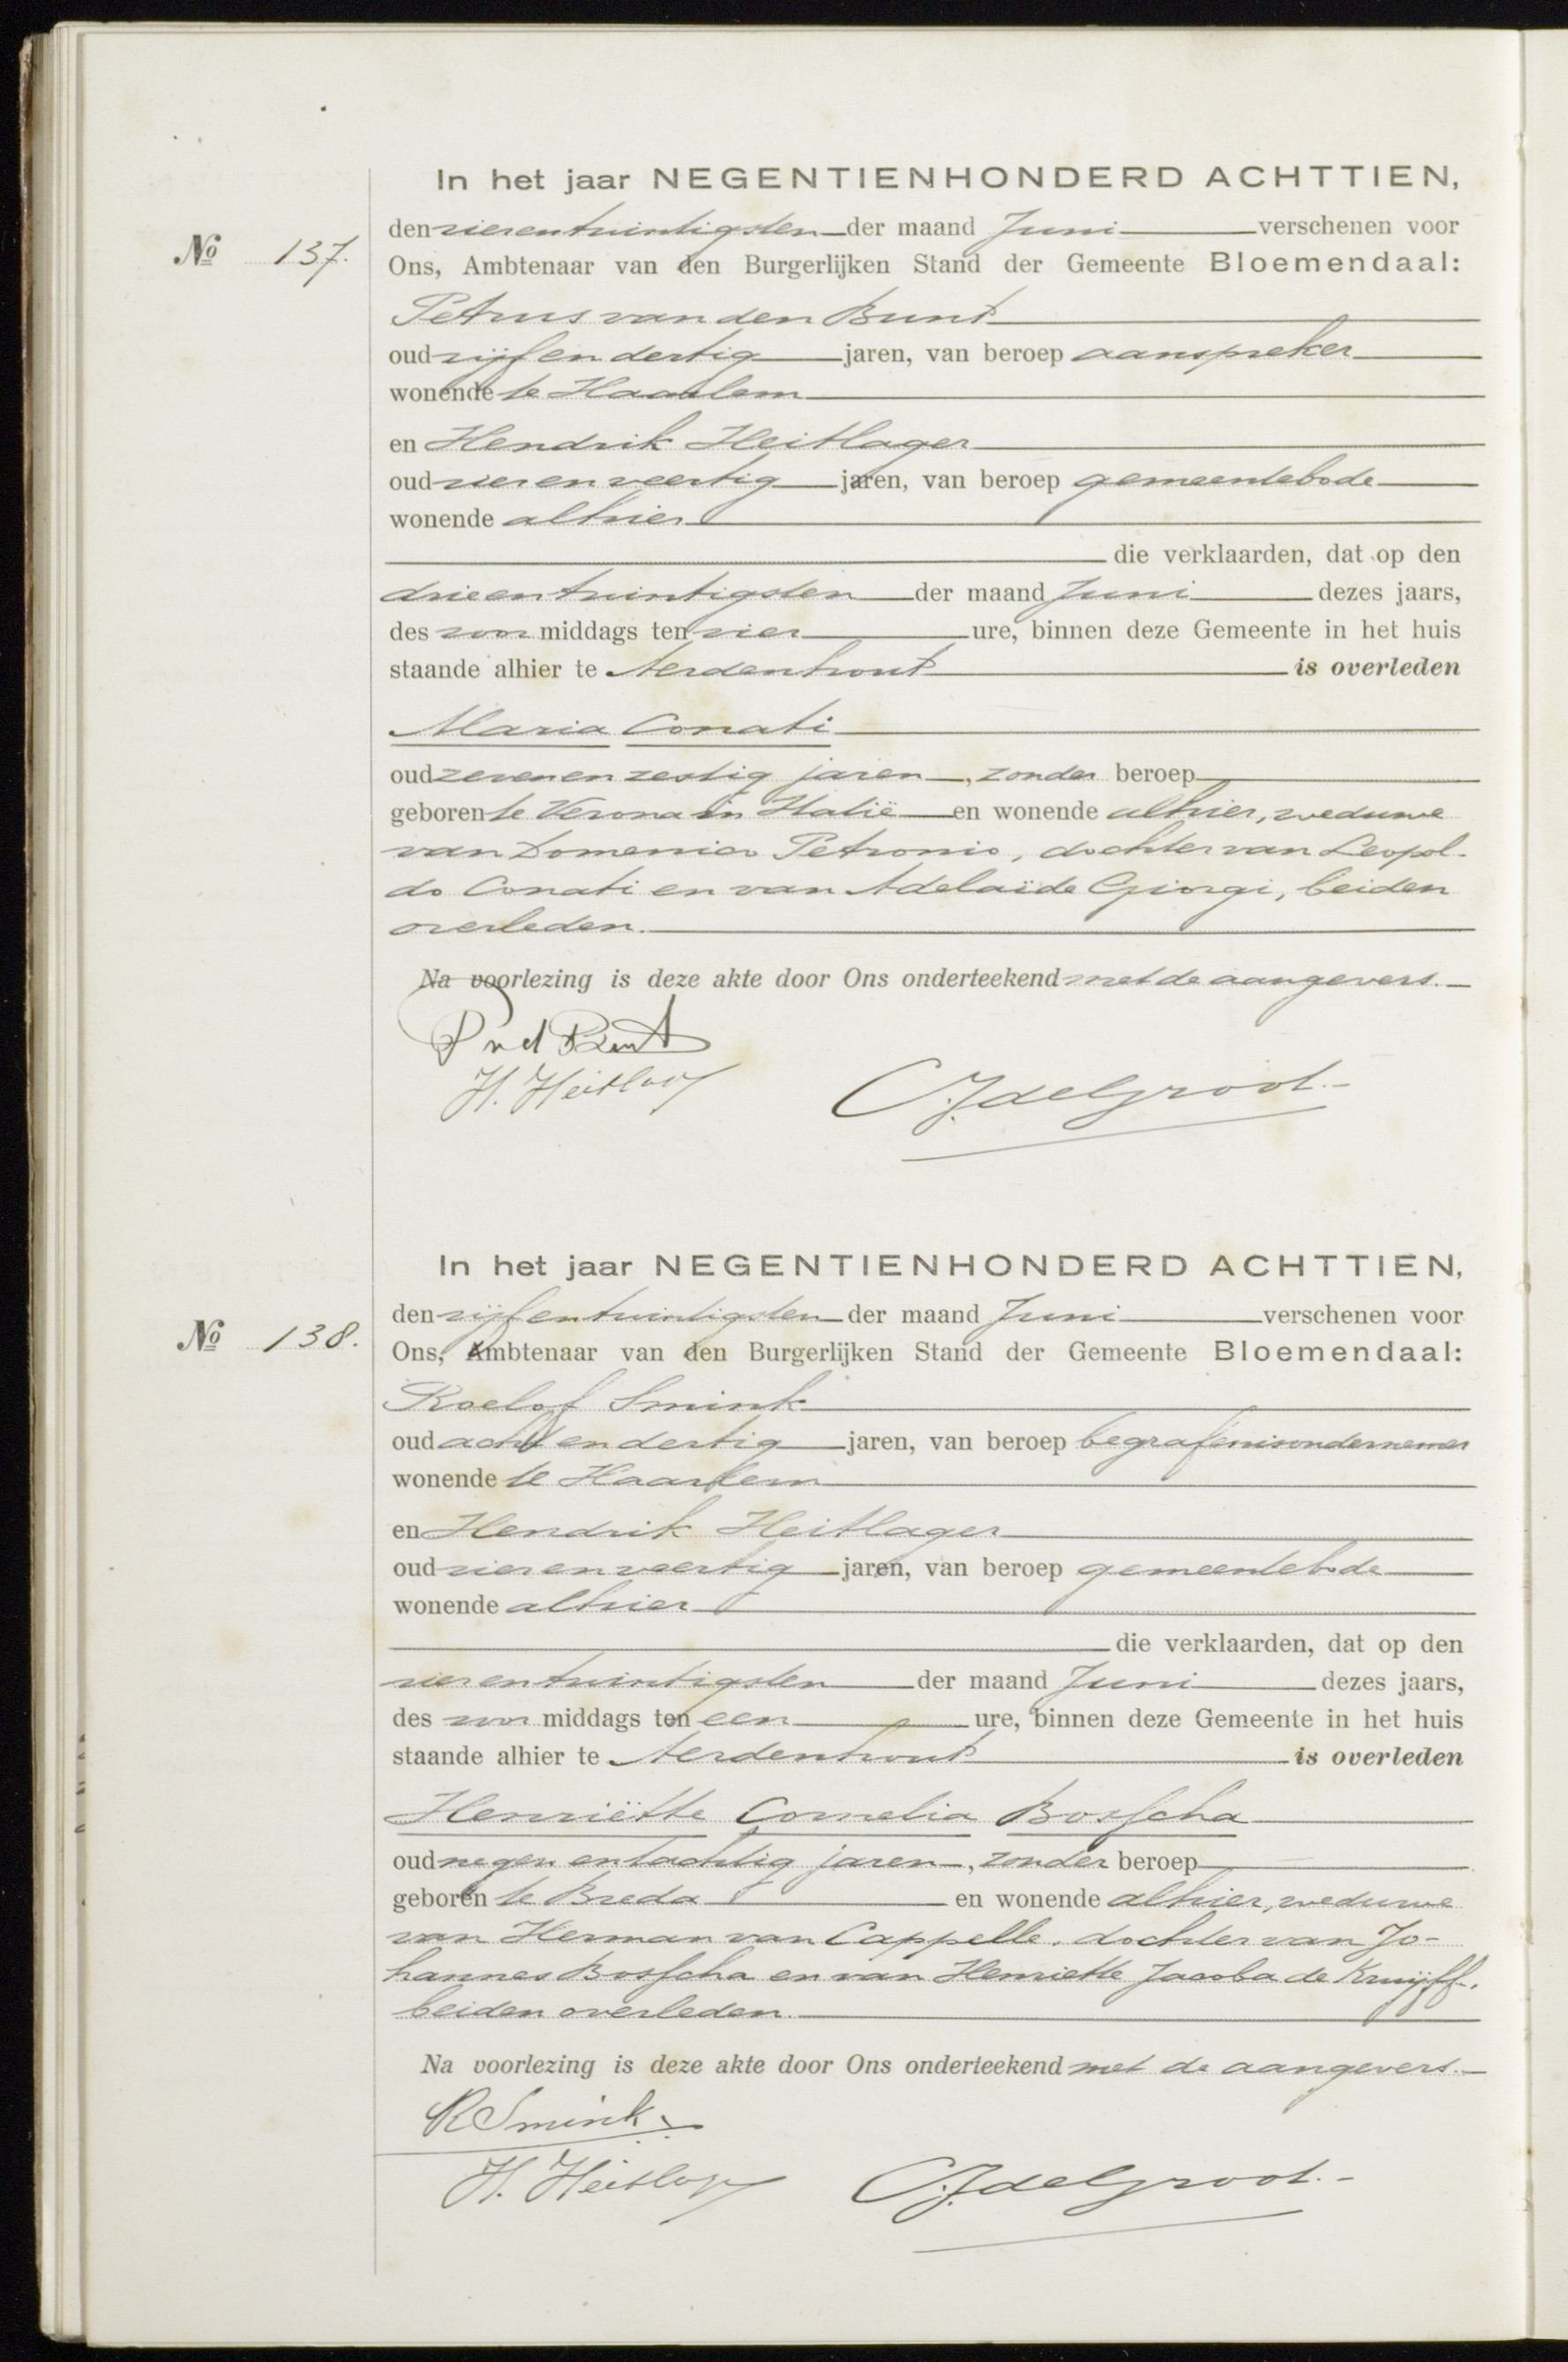 In het jaar NEGENTIENHONDERD ACHTTIEN,
den vierentwintigsten der maand Juni verschenen voor
No 137.
Ons, Ambtenaar van den Burgerlijken Stand der Gemeente Bloemendaal:
Petrus van den Bunt
oud vijf en dertig jaren, van beroep aanspreker
wonende te Haarlem
en Hendrik Heitlager
oud vier en veertig jaren, van beroep gemeentebode
wonende alhier
die verklaarden, dat op den
drieentwintigsten der maand Juni dezes jaars,
des voor middags ten vier ure, binnen deze Gemeente in het huis
staande alhier te Aerdenhout is overleden
Maria Conati
oud zevenenzestig jaren, zonder beroep
geboren te Verona in Italië en wonende alhier, weduwe
van Domenico Petronio, dochter van Leopol-
do Conati en van Adelaïde Giorgi, beiden
overleden.
Na voorlezing is deze akte door Ons onderteekend met de aangevers.
P vd Bunt
H. Heitlager
C.J. de Groot.-
In het jaar NEGENTIENHONDERD ACHTTIEN,
den vijfentwintigsten der maand Juni verschenen voor
No 138.
Ons, Ambtenaar van den Burgerlijken Stand der Gemeente Bloemendaal:
Roelof Smink
oud acht en dertig jaren, van beroep begrafenisondernemer
wonende te Haarlem
en Hendrik Heitlager
oud vier en veertig jaren, van beroep gemeentebode
wonende alhier
die verklaarden, dat op den
vierentwintigsten der maand Juni dezes jaars,
des voor middags ten een ure, binnen deze Gemeente in het huis
staande alhier te Aerdenhout is overleden
Henriëtte Cornelia Bosscha
oud negen entachtig jaren, zonder beroep
geboren te Breda en wonende alhier, weduwe
van Herman van Cappelle, dochter van Jo-
hannes Bosscha en van Henriette Jacoba de Kruijff,
beiden overleden.
Na voorlezing is deze akte door Ons onderteekend met de aangevers.
R Smink
H. Heitlager
C.J. de Groot.-